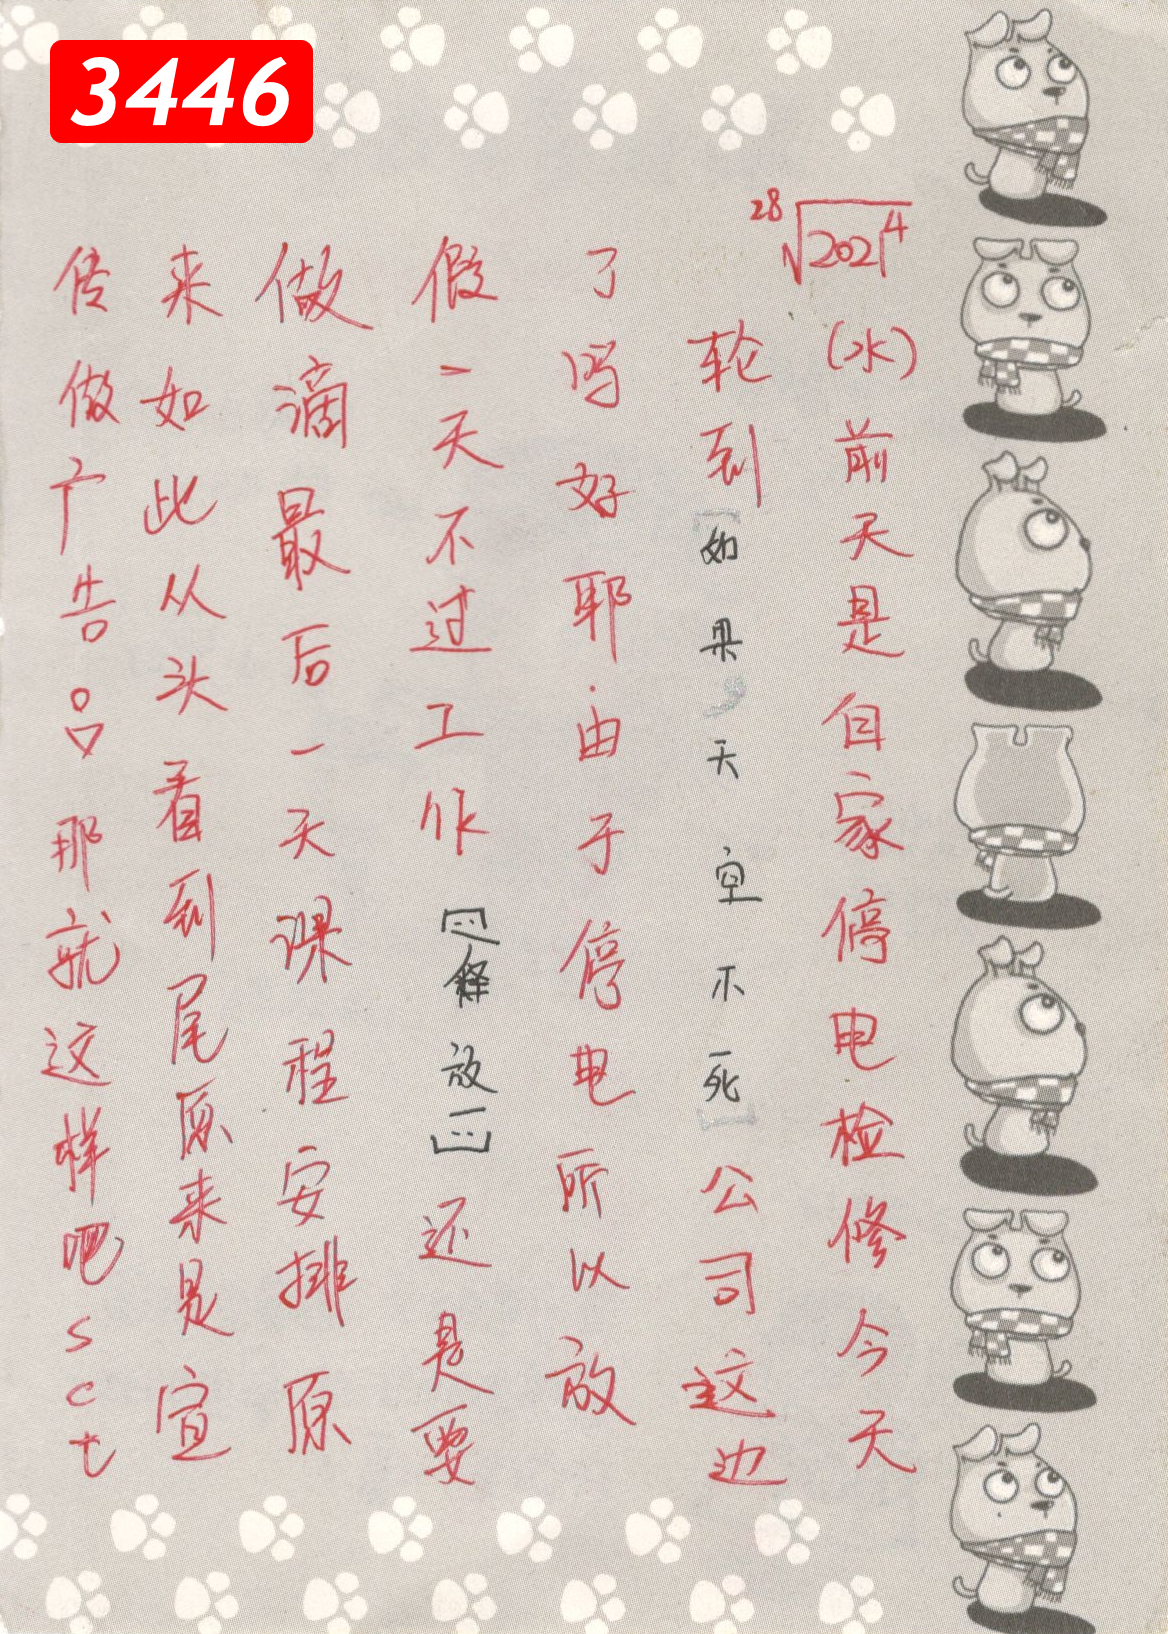 3446
28√2021⁴
(水)前天是自家停电检修今天
轮到[如果,天空不死]公司这边
了吗好耶.由于停电所以放
假一天不过工作[释放]还是要
做滴最后一天课程安排原
来如此从头看到尾原来是宣
传做广告那就这样吧sct